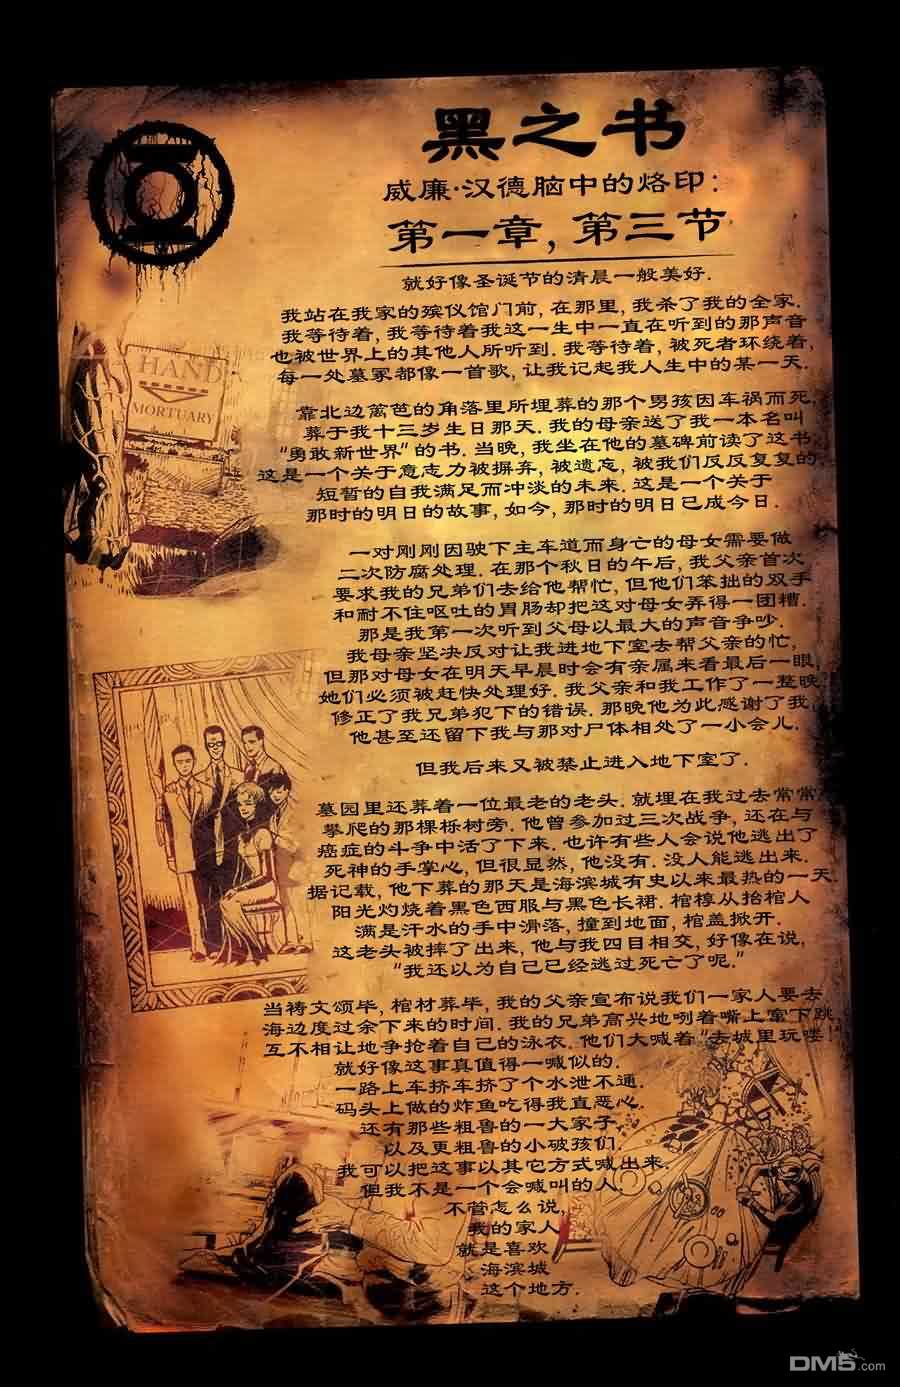 黑之书
威廉·汉德脑中的烙印：
第一章，第三节
就好像圣诞节的清晨一般美好.
我站在我家的殡仪馆门前, 在那里, 我杀了我的全家.
我等待着, 我等待着我这一生中一直在听到的那声音
也被世界上的其他人所听到. 我等待着, 被死者环绕着,
每一处墓冢都像一首歌, 让我记起我人生中的某一天.
HAND
MORTUARY
靠北边篱笆的角落里所埋葬的那个男孩因车祸而死,
葬于我十三岁生日那天. 我的母亲送了我一本名叫
“勇敢新世界”的书. 当晚, 我坐在他的墓碑前读了这书.
这是一个关于意志力被摒弃, 被遗忘, 被我们反反复复的,
短暂的自我满足而冲淡的未来. 这是一个关于
那时的明日的故事, 如今, 那时的明日已成今日.
一对刚刚因驶下主车道而身亡的母女需要做
二次防腐处理. 在那个秋日的午后, 我父亲首次
要求我的兄弟们去给他帮忙, 但他们笨拙的双手
和耐不住呕吐的胃肠却把这对母女弄得一团糟.
那是我第一次听到父母以最大的声音争吵.
我母亲坚决反对让我进地下室去帮父亲的忙,
但那对母女在明天早晨时会有亲属来看最后一眼,
她们必须被赶快处理好. 我父亲和我工作了一整晚,
修正了我兄弟犯下的错误. 那晚他为此感谢了我,
他甚至还留下我与那对尸体相处了一小会儿.
但我后来又被禁止进入地下室了.
墓园里还葬着一位最老的老头. 就埋在我过去常常
攀爬的那棵栎树旁. 他曾参加过三次战争, 还在与
癌症的斗争中活了下来. 也许有些人会说他逃出了
死神的手掌心, 但很显然, 他没有. 没人能逃出来.
据记载, 他下葬的那天是海滨城有史以来最热的一天.
阳光灼烧着黑色西服与黑色长裙. 棺椁从抬棺人
满是汗水的手中滑落, 撞到地面, 棺盖掀开.
这老头被摔了出来, 他与我四目相交, 好像在说,
“我还以为自己已经逃过死亡了呢.”
当祷文颂毕, 棺材葬毕, 我的父亲宣布说我们一家人要去
海边度过余下来的时间. 我的兄弟高兴地咧着嘴上窜下跳,
互不相让地争抢着自己的泳衣. 他们大喊着“去城里玩喽!”
就好像这事真值得一喊似的.
一路上车挤车挤了个水泄不通.
码头上做的炸鱼吃得我直恶心.
还有那些粗鲁的一大家子,
以及更粗鲁的小破孩们.
我可以把这事以其它方式喊出来.
但我不是一个会喊叫的人.
不管怎么说,
我的家人
就是喜欢
海滨城
这个地方.
DM5.com